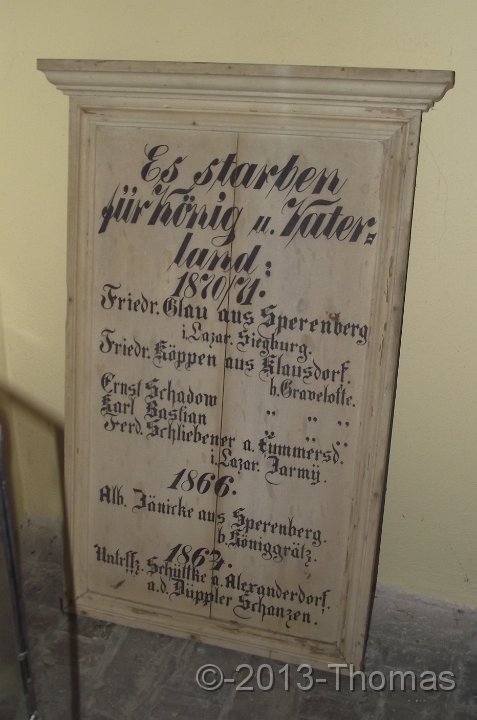 Es starben
für König u. Vater=
land:
1870/71.
Friedr. Glau aus Sperenberg
i. Lazar. Siegburg.
Friedr. Köppen aus Klausdorf.
b. Gravelotte.
Ernst Schadow " " "
Karl Bastian " " "
Ferd. Schliebener a. Kummersd.
i. Lazar. Jarmÿ.
1866.
Alb. Jänicke aus Sperenberg.
b. Königgrätz.
1864.
Untrffz. Schüttke a. Alexanderdorf.
a. d. Düppler Schanzen.
©-2013-Thomas